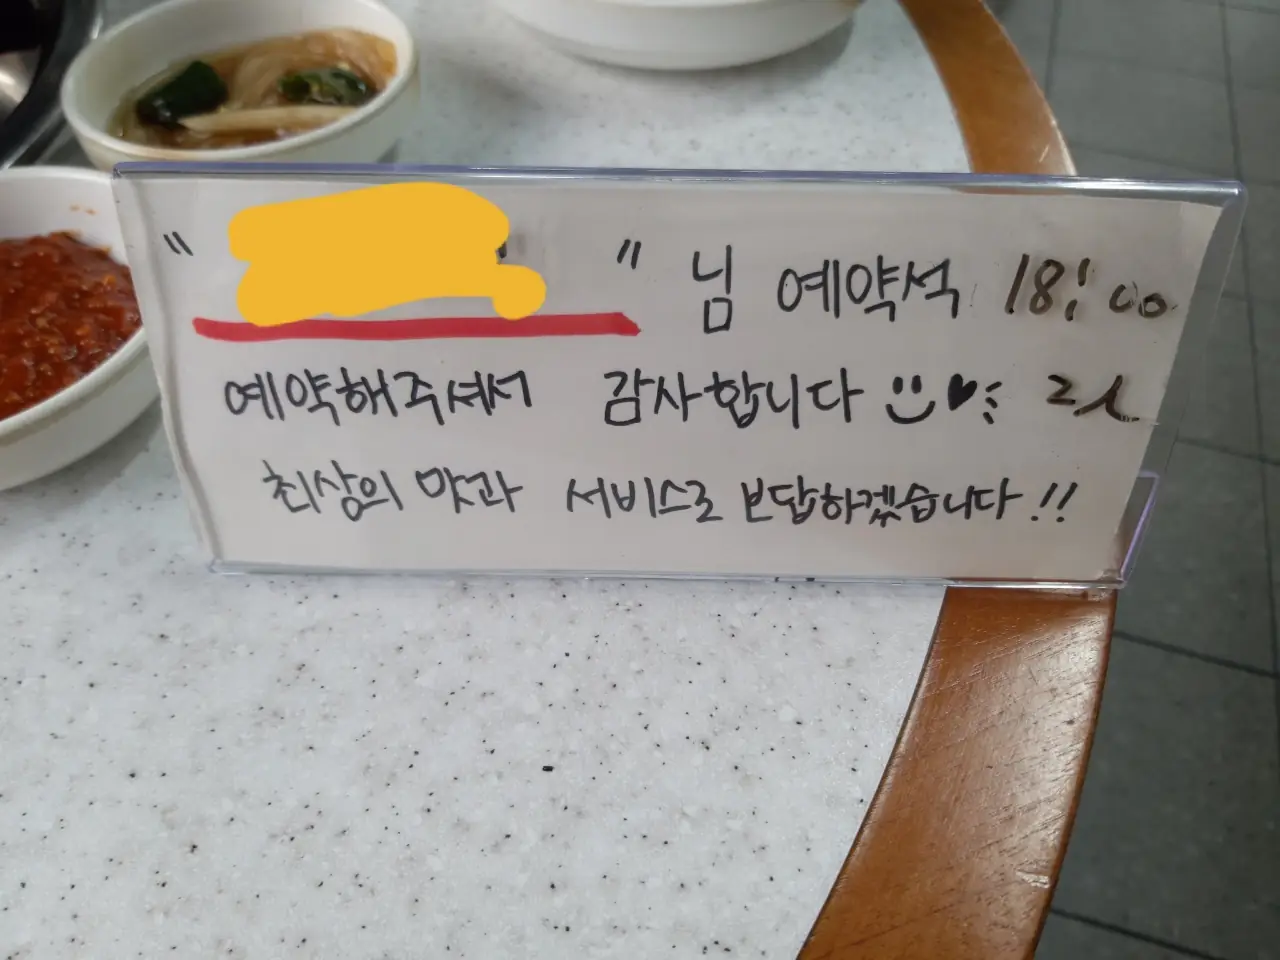 " " 님 예약석 18:00
예약해주셔서 감사합니다 2人
최상의 맛과 서비스로 보답하겠습니다!!